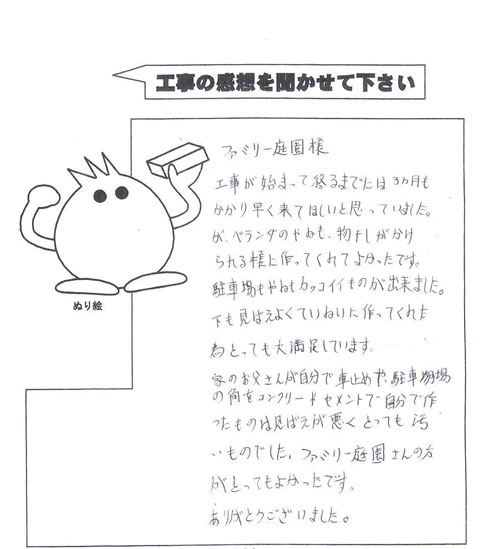 工事の感想を聞かせて下さい
ファミリー庭園様
工事が始まって終るまでには3ヵ月も
かかり早く来てほしいと思っていました。
が、ベランダのやねも、物干しがかけ
られる様に作ってくれてよかったです。
駐車場もやねもカッコイイものが出来ました。
下も見ばえよくていねいに作ってくれた
為とっても大満足しています。
家のお父さんが自分で車止めや、駐車場
の角をコンクリードセメントで自分で作
ったものは見ばえが悪くとっても汚
いものでした。ファミリー庭園さんの方
がとってもよかったです。
ありがとうございました。
ぬり絵